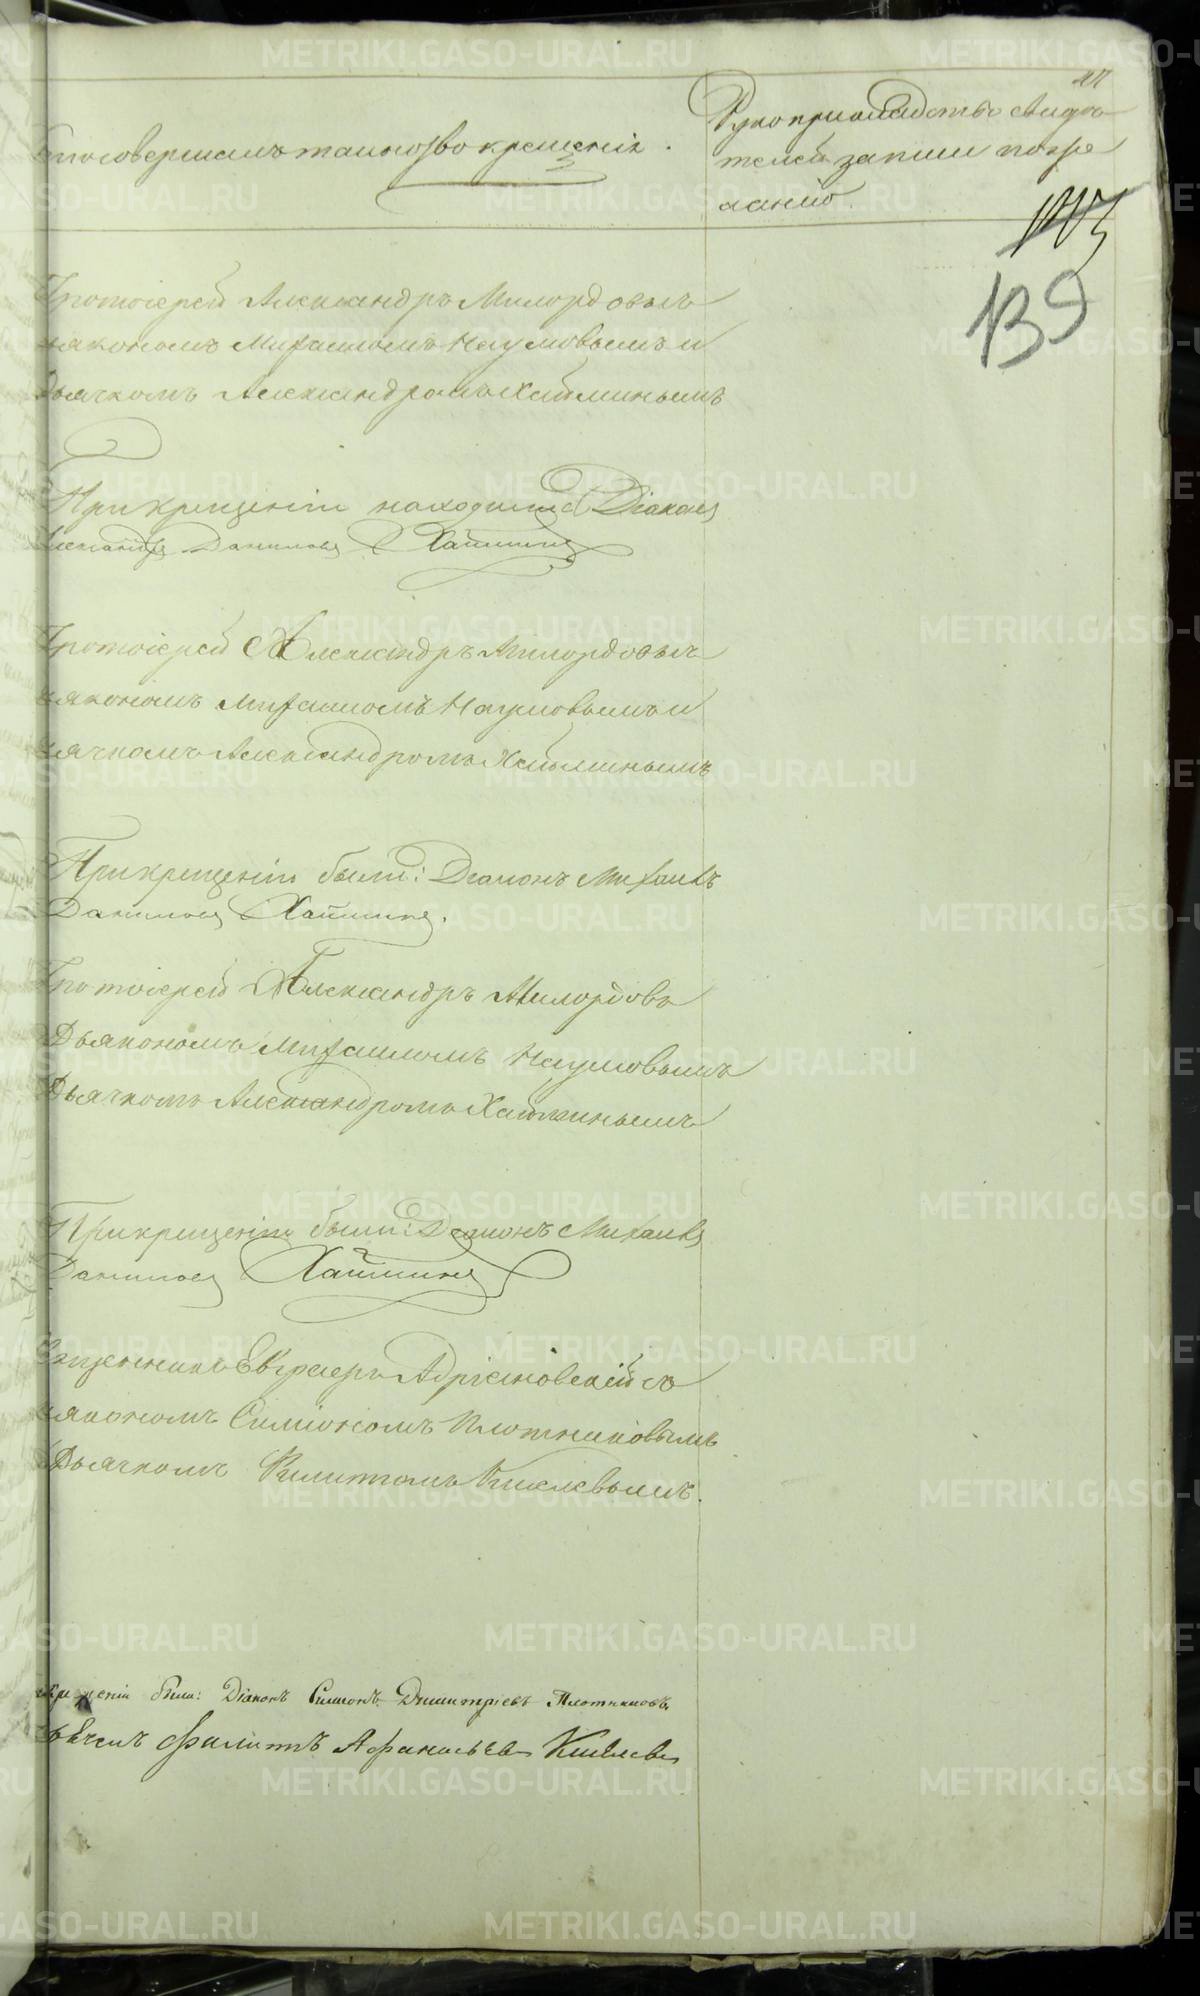 47
Кто совершалъ таинство крещенія.
Рукоприкладство свидѣ
телей записи по же
ланію.
103
139
Протоіерей Александръ Милордовъ съ
дьякономъ Михаиломъ Наумовымъ и
Дьячкомъ Александромъ Хаймипымъ
При крещеніи находился Діаконъ
Александръ Даниловъ
Протоіерей Александръ Милордовъ съ
дьякономъ Михаиломъ Наумовымъ и
дьячкомъ Александромъ
При крещеніи были: Діаконъ Михаилъ
Даниловъ
Протоіерей Александръ Милордовъ
Дьякономъ Михаиломъ Наумовымъ
Дьячкомъ Александромъ
При крещеніи были: Діаконъ Михаилъ
Даниловъ
Священникъ Евграфъ Адріановскій съ
дьякономъ Симіономъ Плотниковымъ
Дьячкомъ Филитомъ Киселевымъ.
крещеніи были: Діаконъ Симионъ Димитріевъ Плотниковъ
Дьячекъ Филитъ Афанасьевъ Киселевъ
METRIKI.GASO-URAL.RU